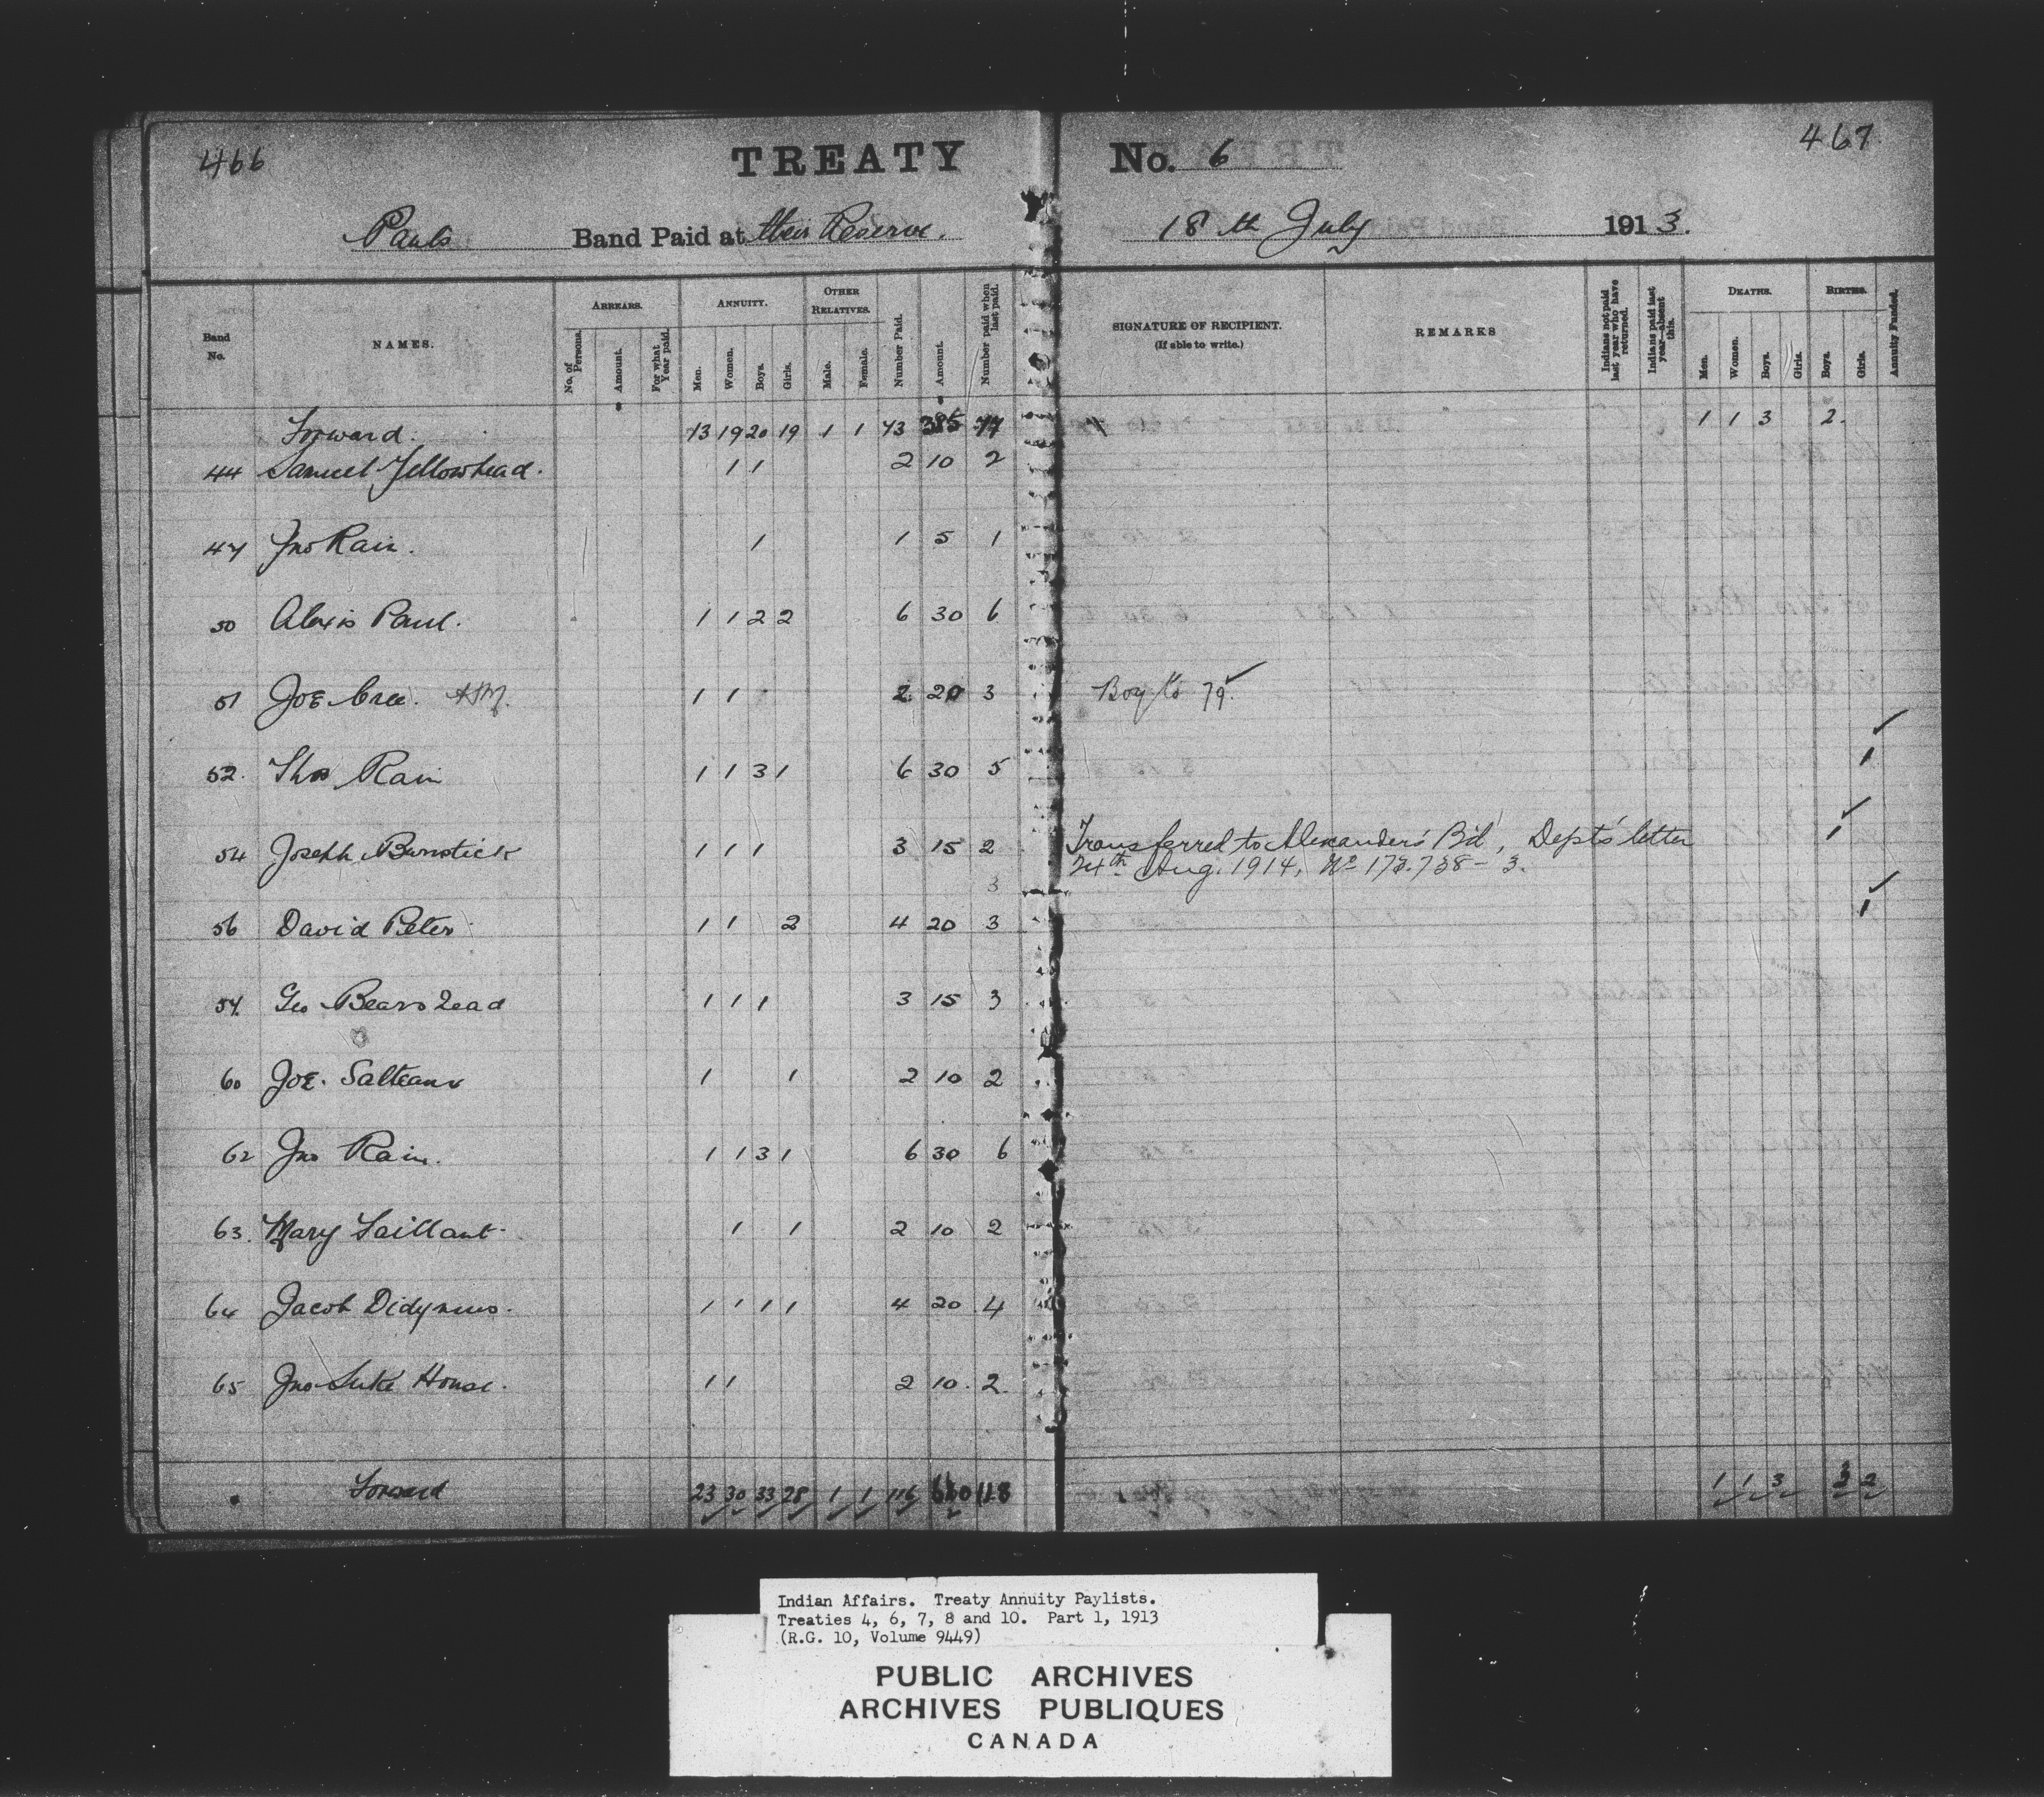 466
TREATY No. 6
467
Pauls Band Paid at their Reserve. 18th July 1913.
Band No.
NAMES.
ARREARS.
No. of Persons.
Amount.
For what Year paid.
ANNUITY.
Men.
Women.
Boys.
Girls.
OTHER RELATIVES.
Male.
Female.
Number Paid.
Amount.
Number paid when last paid.
SIGNATURE OF RECIPIENT.
(If able to write.)
REMARKS
Indians not paid last year who have returned.
Indians paid last year—absent this.
DEATHS.
Men.
Women.
Boys.
Girls.
BIRTHS.
Boys.
Girls.
Annuity Funded.
Forward. 13 19 20 19 1 1 73 385 77 1 1 3 2.
44 Samuel Yellowhead. 1 1 2 10 2
47 Jno Rain. 1 1 5 1
50 Alexis Paul. 1 1 2 2 6 30 6
51 Joe Cree. 1 1 2 20 3 Boy to 79.
52. Thos Rain 1 1 3 1 6 30 5 1
54 Joseph Burnstick 1 1 1 3 15 2 Transferred to Alexander's Bd, Dept's letter 1
3 24th Aug. 1914, No 173.738-3.
56 David Peter 1 1 2 4 20 3 1
57. Geo Bearshead 1 1 1 3 15 3
60 Joe. Salteaux 1 1 2 10 2
62 Jno Rain. 1 1 3 1 6 30 6
63. Mary Saillant 1 1 2 10 2
64 Jacob Didymus. 1 1 1 1 4 20 4
65 Jno Luke House. 1 1 2 10. 2.
Forward 23 30 33 28 1 1 116 118 1 1 3 3 2
Indian Affairs. Treaty Annuity Paylists.
Treaties 4, 6, 7, 8 and 10. Part 1, 1913
(R.G. 10, Volume 9449)
PUBLIC ARCHIVES
ARCHIVES PUBLIQUES
CANADA